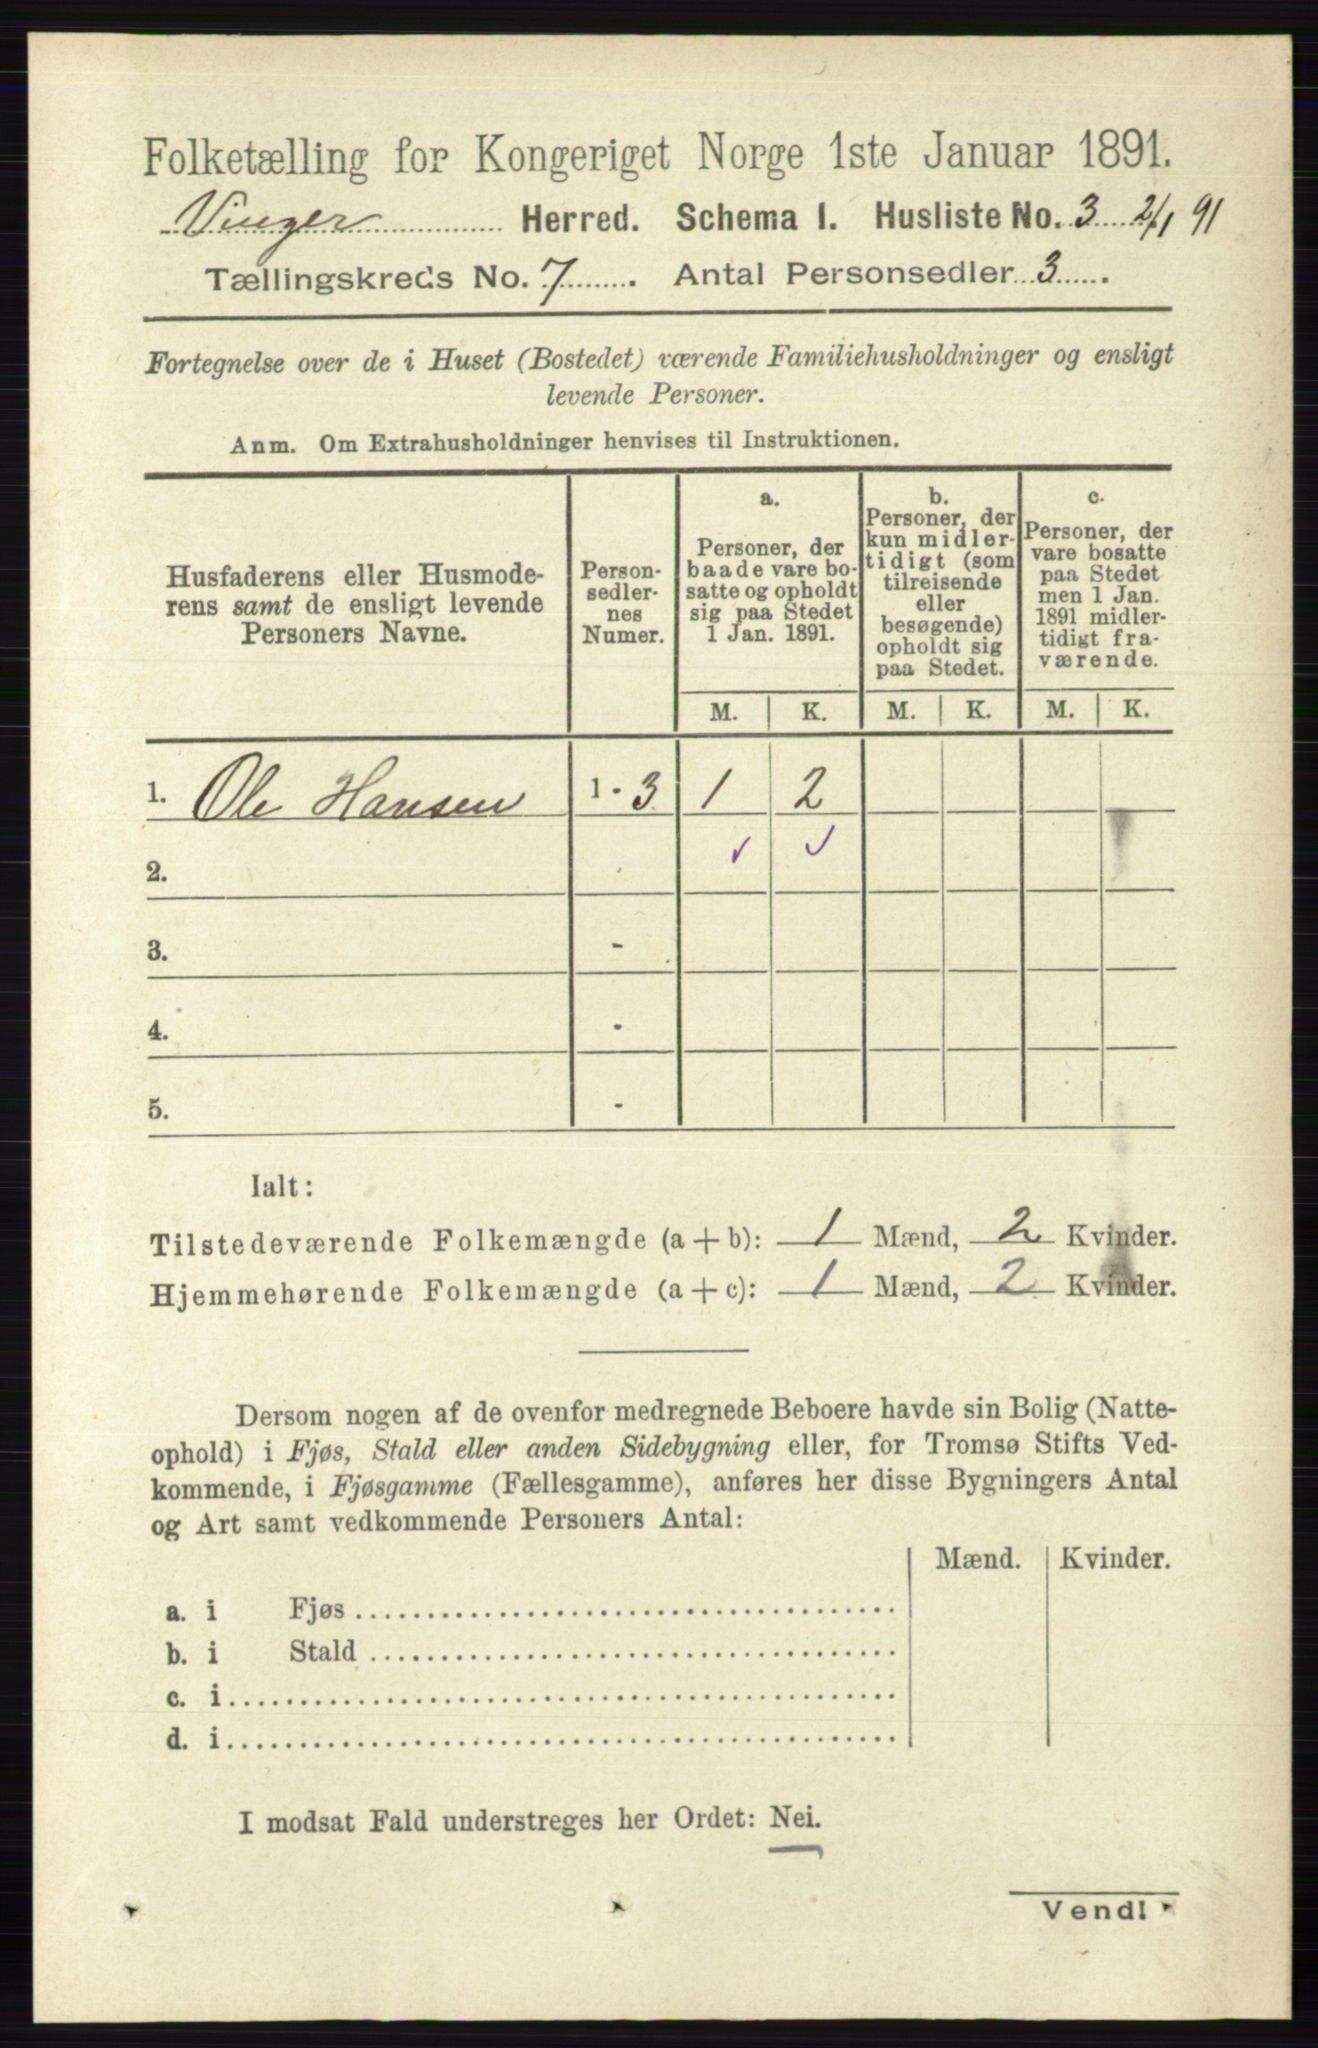 Folketælling for Kongeriget Norge 1ste Januar 1891.
Vinger Herred. Schema 1. Husliste No. 3 2/1 91
Tællingskreds No. 7 . Antal Personsedler 3 .
Fortegnelse over de i Huset (Bostedet) værende Familiehusholdninger og ensligt
levende Personer.
Anm. Om Extrahusholdninger henvises til Instruktionen.
Husfaderens eller Husmode-
rens samt de ensligt levende
Personers Navne.
Person-
sedler-
nes
Numer.
a.
Personer, der
baade vare bo-
satte og opholdt
sig paa Stedet
1 Jan. 1891.
b.
Personer, der
kun midler-
tidigt (som
tilreisende
eller
besøgende)
opholdt sig
paa Stedet.
c.
Personer, der
vare bosatte
paa Stedet
men 1 Jan.
1891 midler-
tidigt fra-
værende.
M. K. M. K. M. K.
1. Ole Hansen 1 - 3 1 2
2. ✓ ✓
3. -
4. -
5. -
Ialt:
Tilstedeværende Folkemængde (a + b): 1 Mænd, 2 Kvinder.
Hjemmehørende Folkemængde (a + c): 1 Mænd, 2 Kvinder.
Dersom nogen af de ovenfor medregnede Beboere havde sin Bolig (Natte-
ophold) i Fjøs, Stald eller anden Sidebygning eller, for Tromsø Stifts Ved-
kommende, i Fjøsgamme (Fællesgamme), anføres her disse Bygningers Antal
og Art samt vedkommende Personers Antal:
Mænd. Kvinder.
a. i Fjøs
b. i Stald
c. i
d. i
I modsat Fald understreges her Ordet: Nei.
Vend!